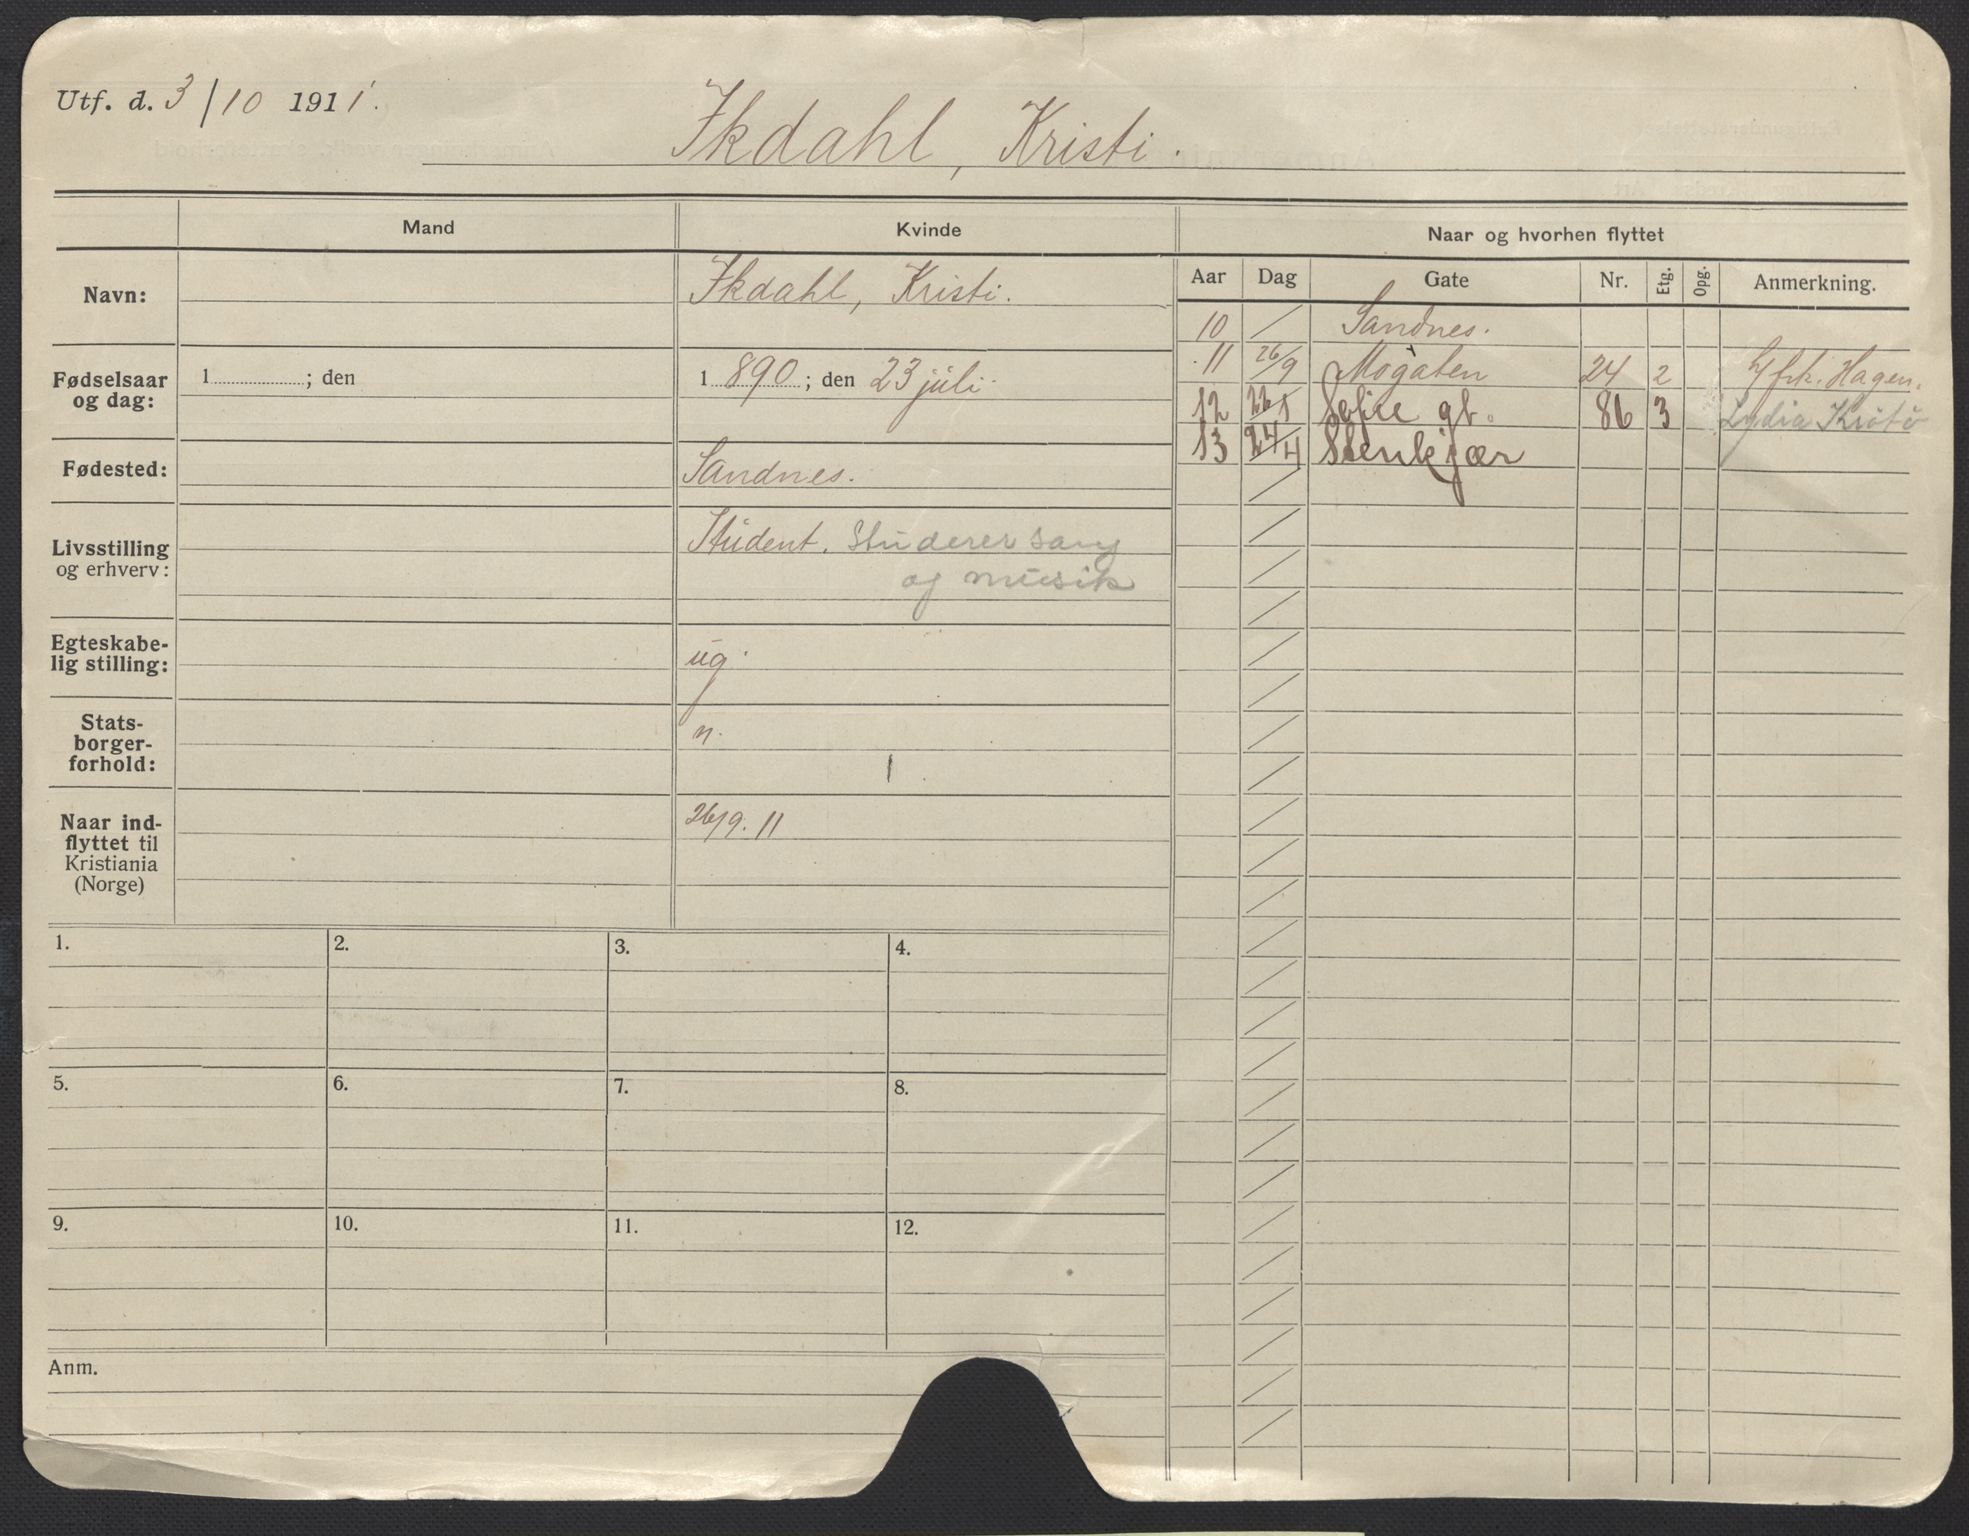 Utf. d. 3/10 1911.
Ikdahl, Kristi.
Mand
Kvinde
Naar og hvorhen flyttet
Navn:
Ikdahl, Kristi.
Aar Dag Gate Nr. Etg. Opg. Anmerkning.
10 / Sandnes.
11 26/9 Mogaten 24 2 h/ frk. Hagen.
12 22/1 Sofie gt. 86 3 Lydia
13 24/4 Stenkjær
Fødselsaar
og dag:
1 ; den
1 890 ; den 23 juli.
Fødested:
Sandnes.
Livsstilling
og erhverv:
Student. Studerer sang
og musik
Egteskabe-
lig stilling:
ug.
Stats-
borger-
forhold:
n.
Naar ind-
flyttet til
Kristiania
(Norge)
26/9. 11
1. 2. 3. 4.
5. 6. 7. 8.
9. 10. 11. 12.
Anm.